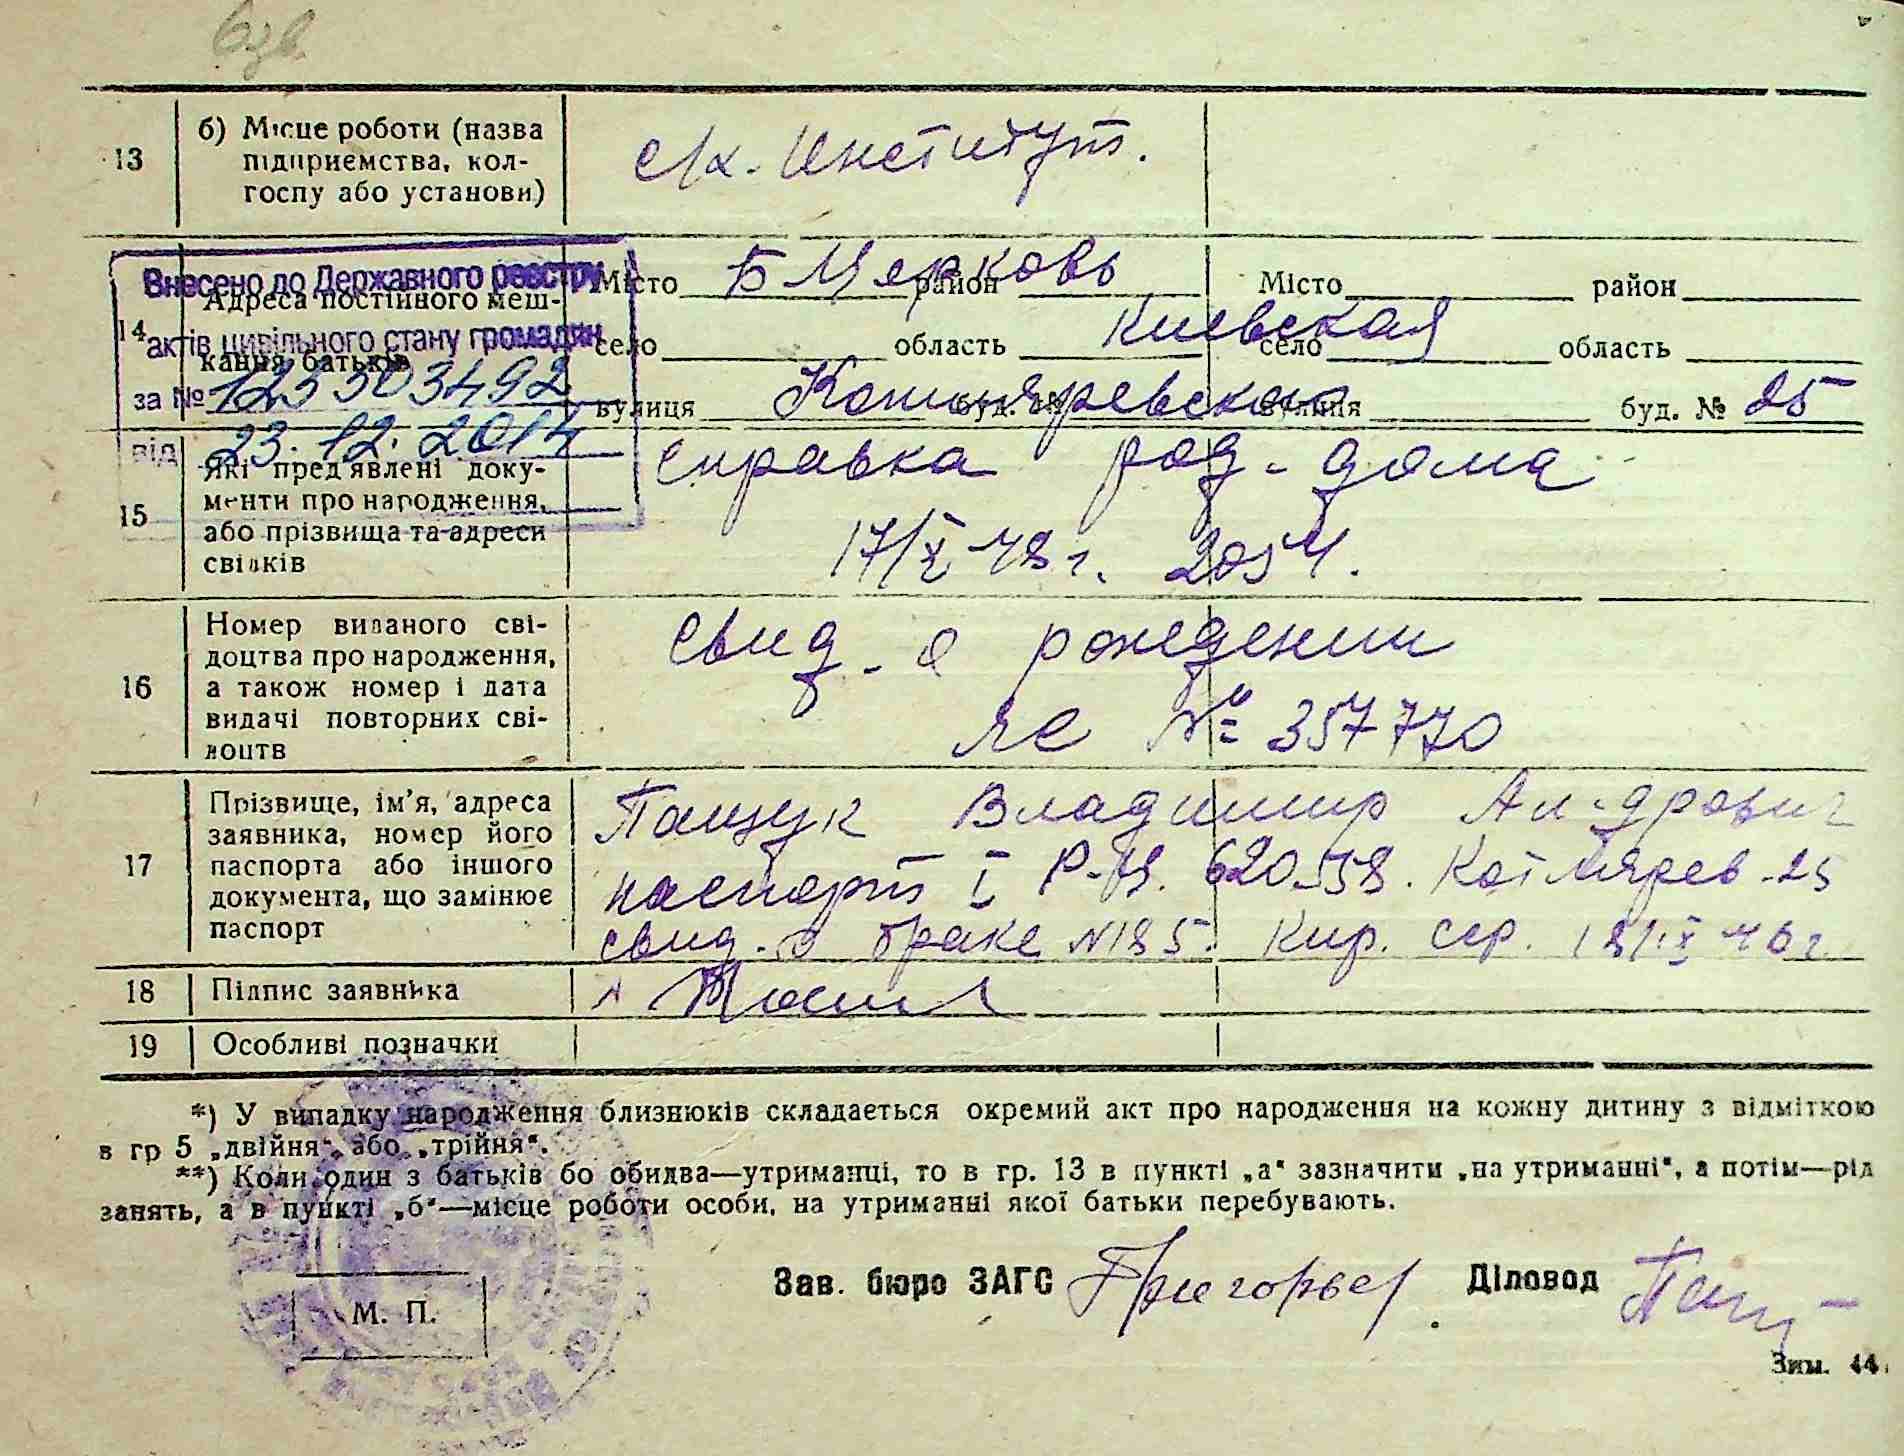 13
б) Місце роботи (назва
підприємства, кол-
госпу або установи)
с/х. Институт.
Внесено до Державного реєстру
актів цивільного стану громадян
за № 1253503492
від 23.12.2014
14
Адреса постійного меш-
кання батьків
Місто Б Церковь район
Місто район
село область Киевская
село область
вулиця Котляревского буд. №
вулиця буд. № 25
15
Які пред'явлені доку-
менти про народження,
або прізвища та адреси
свідків
справка род-дома
17/X-48 г.
16
Номер виданого сві-
доцтва про народження,
а також номер і дата
видачі повторних сві-
доцтв
свид-о рождении
ЯС № 357770
17
Прізвище, ім'я, адреса
заявника, номер його
паспорта або іншого
документа, що замінює
паспорт
Пащук Владимир Ал-дрович
паспорт I Р-Ц. Котлярев-25
свид-о браке N185. Кир. сср. 18/IX 46 г.
18
Підпис заявника
19
Особливі позначки
*) У випадку народження близнюків складається окремий акт про народження на кожну дитину з відміткою
в гр 5 „двійня“ або „трійня“.
**) Коли один з батьків бо обидва—утриманці, то в гр. 13 в пункті „а“ зазначити „на утриманні“, а потім—рід
занять, а в пункті „б“—місце роботи особи, на утриманні якої батьки перебувають.
Зав. бюро ЗАГС Григорьев
Діловод
М. П.
Зим. 44